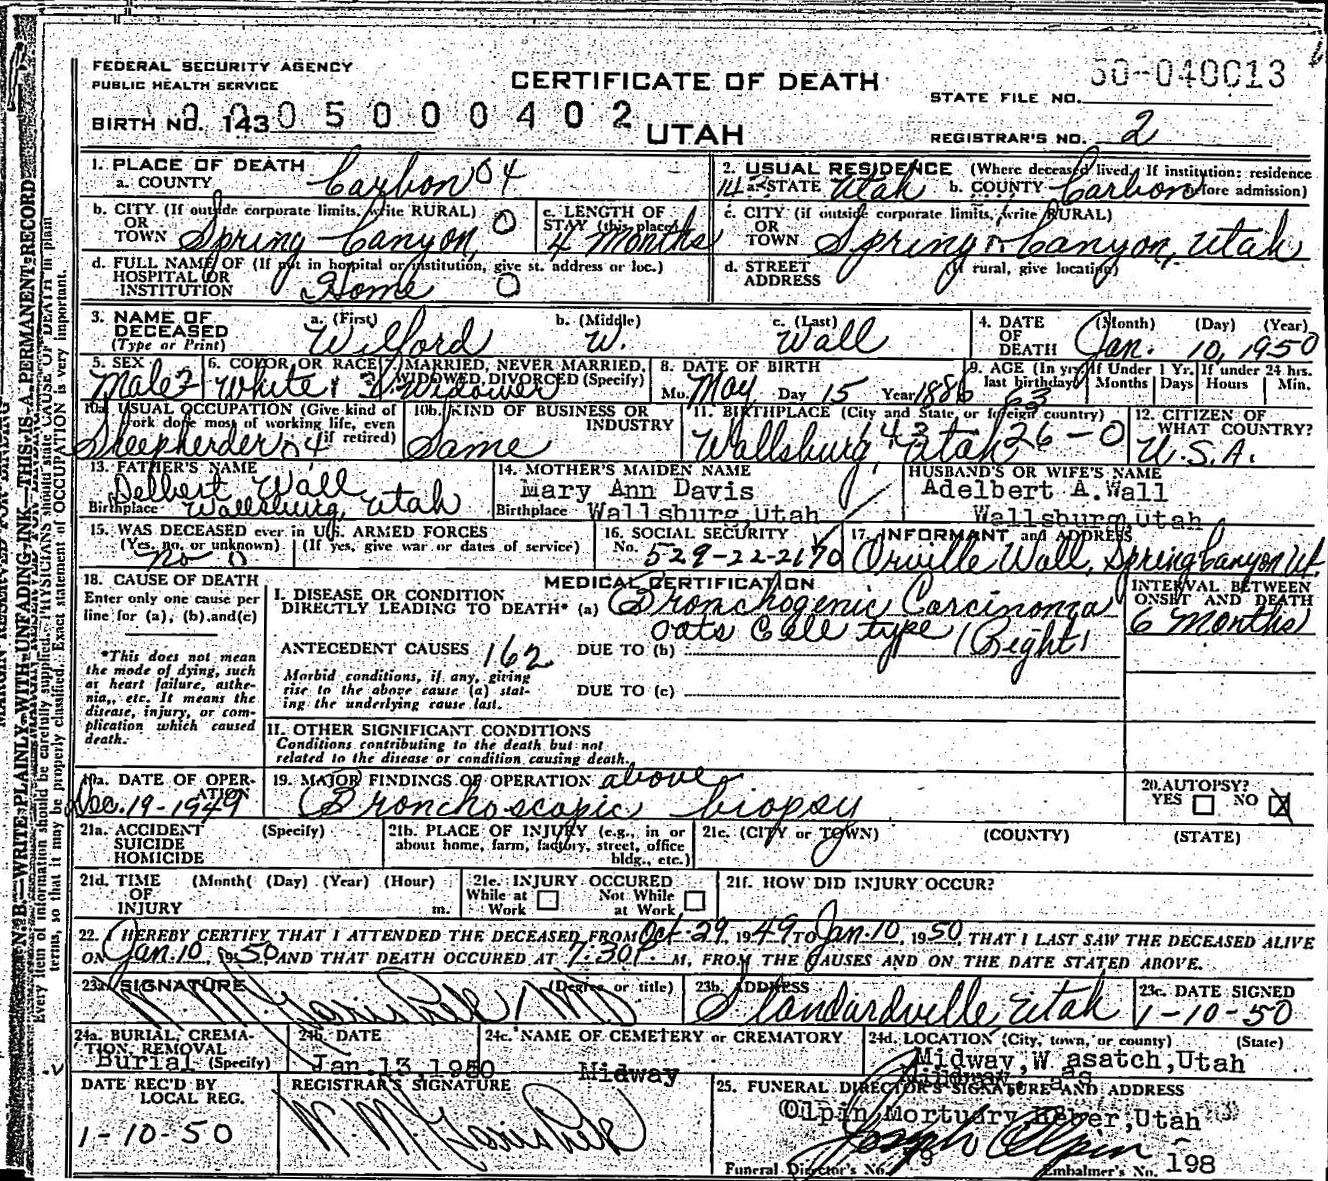 FEDERAL SECURITY AGENCY
PUBLIC HEALTH SERVICE
CERTIFICATE OF DEATH
UTAH
STATE FILE NO. 50-040013
BIRTH NO. 143 0 0 5 0 0 0 4 0 2
REGISTRAR'S NO. 2
1. PLACE OF DEATH
a. COUNTY Carbon 04
2. USUAL RESIDENCE (Where deceased lived. If institution: residence before admission)
a. STATE Utah b. COUNTY Carbon
b. CITY (If outside corporate limits, write RURAL)
OR
TOWN Spring Canyon, 0
c. LENGTH OF
STAY (this place)
4 months
c. CITY (if outside corporate limits, write RURAL)
OR
TOWN Spring Canyon, Utah
d. FULL NAME OF (If not in hospital or institution, give st. address or loc.)
HOSPITAL OR
INSTITUTION Home 0
d. STREET (If rural, give location)
ADDRESS
3. NAME OF
DECEASED
(Type or Print)
a. (First) b. (Middle) c. (Last)
Wilford W. Wall
4. DATE
OF
DEATH
(Month) (Day) (Year)
Jan. 10, 1950
5. SEX
Male 2
6. COLOR OR RACE
White 1
7. MARRIED, NEVER MARRIED,
WIDOWED, DIVORCED (Specify)
3 Widower
8. DATE OF BIRTH
Mo. May Day 15 Year 1886
9. AGE (In yrs. last birthday) 63
If Under 1 Yr. Months Days
If under 24 hrs. Hours Min.
10a. USUAL OCCUPATION (Give kind of
work done most of working life, even
if retired)
Sheepherder 04
10b. KIND OF BUSINESS OR
INDUSTRY
Same
11. BIRTHPLACE (City and State, or foreign country)
Wallsburg, Utah 43-26-0
12. CITIZEN OF
WHAT COUNTRY?
U.S.A.
13. FATHER'S NAME
Delbert Wall
Birthplace Wallsburg, Utah
14. MOTHER'S MAIDEN NAME
Mary Ann Davis
Birthplace Wallsburg,Utah
HUSBAND'S OR WIFE'S NAME
Adelbert A.Wall
Wallsburg,Utah
15. WAS DECEASED ever in U.S. ARMED FORCES
(Yes, no, or unknown) (If yes, give war or dates of service)
no 0
16. SOCIAL SECURITY
No. 529-22-2170
17. INFORMANT and ADDRESS
Orville Wall, Spring Canyon Ut.
18. CAUSE OF DEATH
Enter only one cause per
line for (a), (b), and (c)
*This does not mean
the mode of dying, such
as heart failure, asthe-
nia, etc. It means the
disease, injury, or com-
plication which caused
death.
MEDICAL CERTIFICATION
I. DISEASE OR CONDITION
DIRECTLY LEADING TO DEATH* (a) Bronchogenic Carcinoma
oats Cell type (Right)
INTERVAL BETWEEN
ONSET AND DEATH
6 months
ANTECEDENT CAUSES 162 DUE TO (b)
Morbid conditions, if any, giving
rise to the above cause (a) stat-
ing the underlying cause last.
DUE TO (c)
II. OTHER SIGNIFICANT CONDITIONS
Conditions contributing to the death but not
related to the disease or condition causing death.
19a. DATE OF OPER-
ATION
Dec. 19-1949
19. MAJOR FINDINGS OF OPERATION above
Bronchoscopic biopsy
20. AUTOPSY?
YES NO X
21a. ACCIDENT (Specify)
SUICIDE
HOMICIDE
21b. PLACE OF INJURY (e.g., in or
about home, farm, factory, street, office
bldg., etc.)
21c. (CITY or TOWN) (COUNTY) (STATE)
21d. TIME (Month) (Day) (Year) (Hour)
OF
INJURY m.
21e. INJURY OCCURED
While at Work Not While at Work
21f. HOW DID INJURY OCCUR?
22. I HEREBY CERTIFY THAT I ATTENDED THE DECEASED FROM Oct-29, 1949 TO Jan-10, 1950, THAT I LAST SAW THE DECEASED ALIVE
ON Jan. 10, 1950 AND THAT DEATH OCCURED AT 7:30P. M, FROM THE CAUSES AND ON THE DATE STATED ABOVE.
23a. SIGNATURE (Degree or title)
MD
23b. ADDRESS
Standardville, Utah
23c. DATE SIGNED
1-10-50
24a. BURIAL, CREMA-
TION, REMOVAL
Burial (Specify)
24b. DATE
Jan.13,1950
24c. NAME OF CEMETERY or CREMATORY
Midway
24d. LOCATION (City, town, or county) (State)
Midway,W asatch,Utah
DATE REC'D BY
LOCAL REG.
1-10-50
REGISTRAR'S SIGNATURE
25. FUNERAL DIRECTOR'S SIGNATURE AND ADDRESS
Olpin Mortuary,Heber,Utah
Joseph Olpin
Funeral Director's No. Embalmer's No. 198
N.B.—WRITE PLAINLY WITH UNFADING INK—THIS IS A PERMANENT RECORD